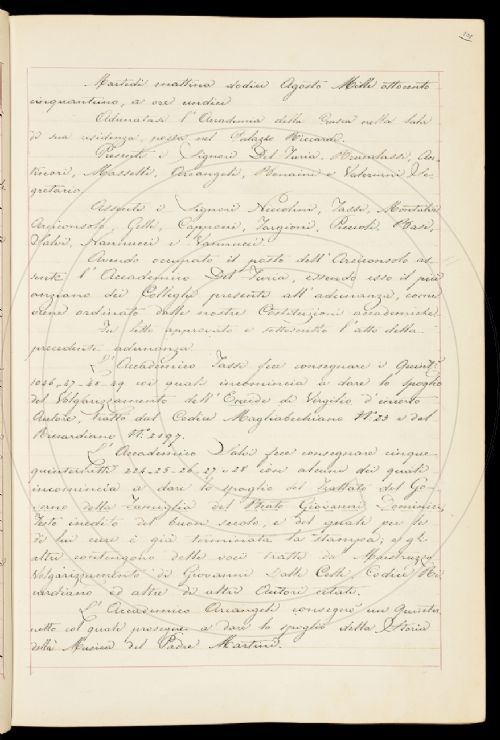 Martedì mattina dodici Agosto Mille ottocento
cinquantuno, a ore undici
Adunatasi l'Accademia della Crusca nella Sala
di sua residenza, posta nel Palazzo Riccardi.
Presenti i Signori Del Furia, Brucalassi,
Masselli, Arcangeli, Bonaini e Valeriani Se-
gretario.
Assenti i Signori Niccolini, Tassi, Montalvi
Arciconsolo, Gelli, Capponi, Targioni, Puccioli, Basi,
Salvi, Nannucci e Vannucci.
Avendo occupato il posto dell'Arciconsolo as-
sente l'Accademico Del Furia, essendo esso il più
anziano dei Colleghi presenti all'adunanza, come
viene ordinato dalle nostre Costituzioni accademiche.
Fu letto approvato e sottoscritto l'atto della
precedente adunanza.
L'Accademico Tassi fece consegnare i Quint.i
1026-27-28-29 coi quali incomincia a dare lo spoglio
del Volgarizzamento dell'Eneide di Virgilio d'incerto
Autore, tratto dal Codice Magliabechiano N.° 23 e dal
Riccardiano N.° 2197.
L'Accademico Salvi fece consegnare cinque
quinternetti 224-25-26-27 e 28 con alcuni dei quali
incomincia a dare lo spoglio del Trattato del Go-
verno della Famiglia del Beato Giovanni Dominici,
Testo inedito del buon secolo, e del quale per le
di lui cure è già terminata la stampa; e gli
altri contengono delle voci tratte da Maestruzzo
Volgarizzamento di Giovanni Dalle Celle, Codice Ric-
cardiano ed altre di altri Autori citati.
L'Accademico Arcangeli consegnò un Quinter-
netto col quale prosegue a dare lo spoglio della Storia
della Musica del Padre Martini.